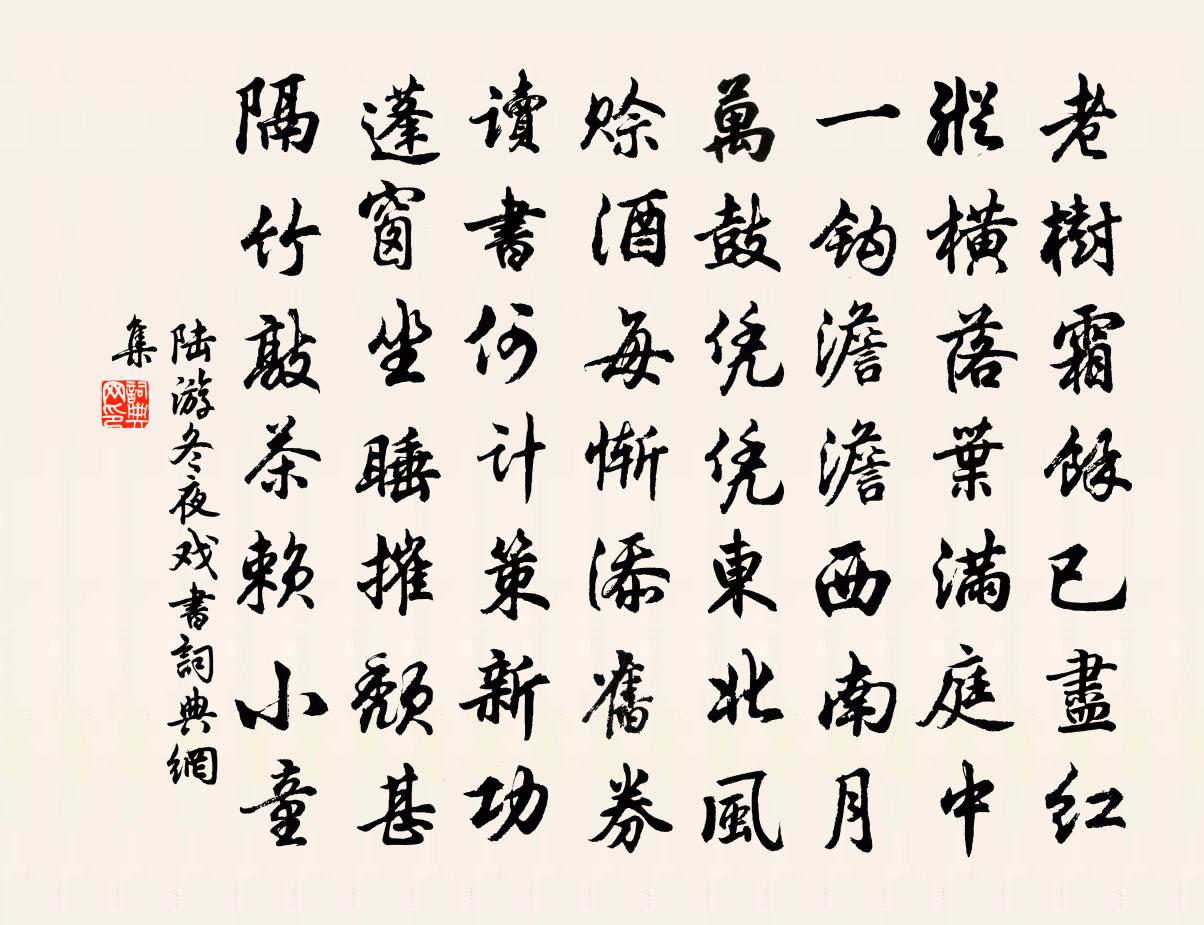 老樹霜餘已盡紅
縱橫落葉滿庭中
一鈎澹澹西南月
萬鼓凭凭東北風
賒酒每慚添舊券
讀書何計策新功
蓬窗坐睡摧頹甚
隔竹敲茶賴小童
陆游冬夜戏書詞典網
集
詞典网印